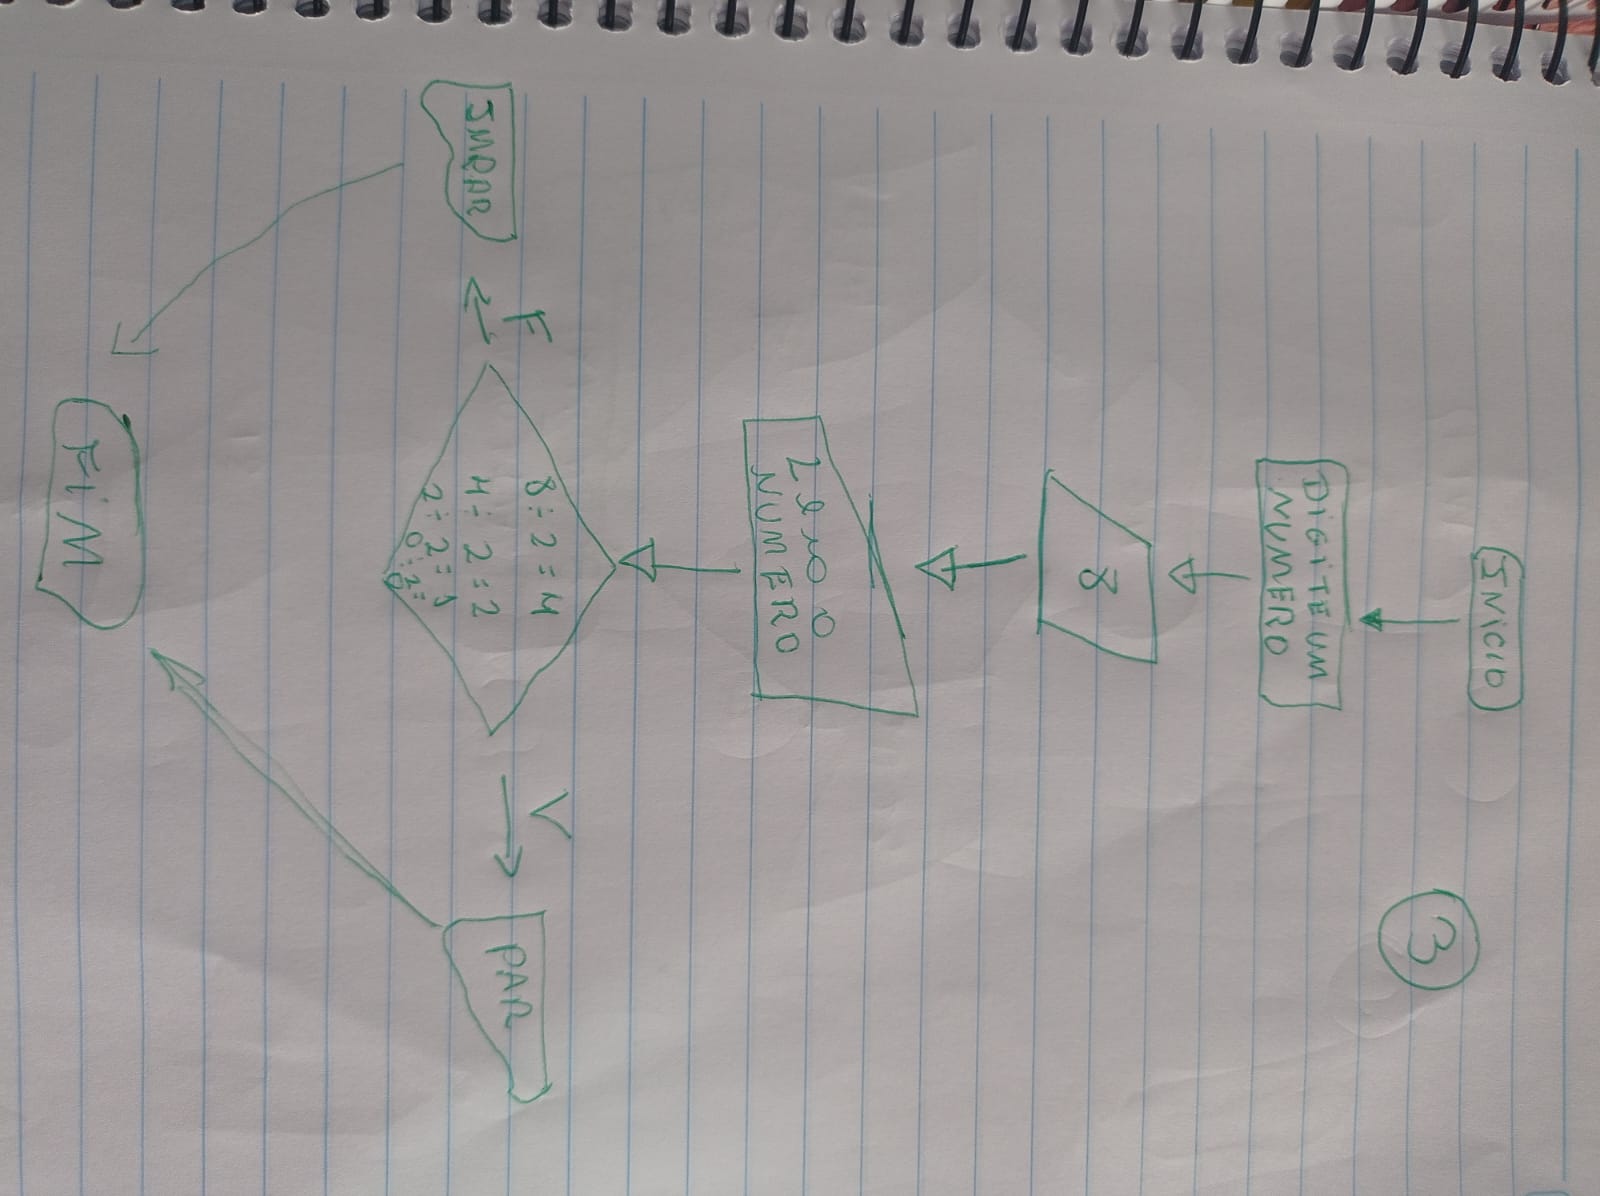 INICIO
3
DIGITE UM
NUMERO
8
Leia o
NUMERO
8÷2=4
4÷2=2
2÷2=1
0÷2=
0
F
V
IMPAR
PAR
FIM